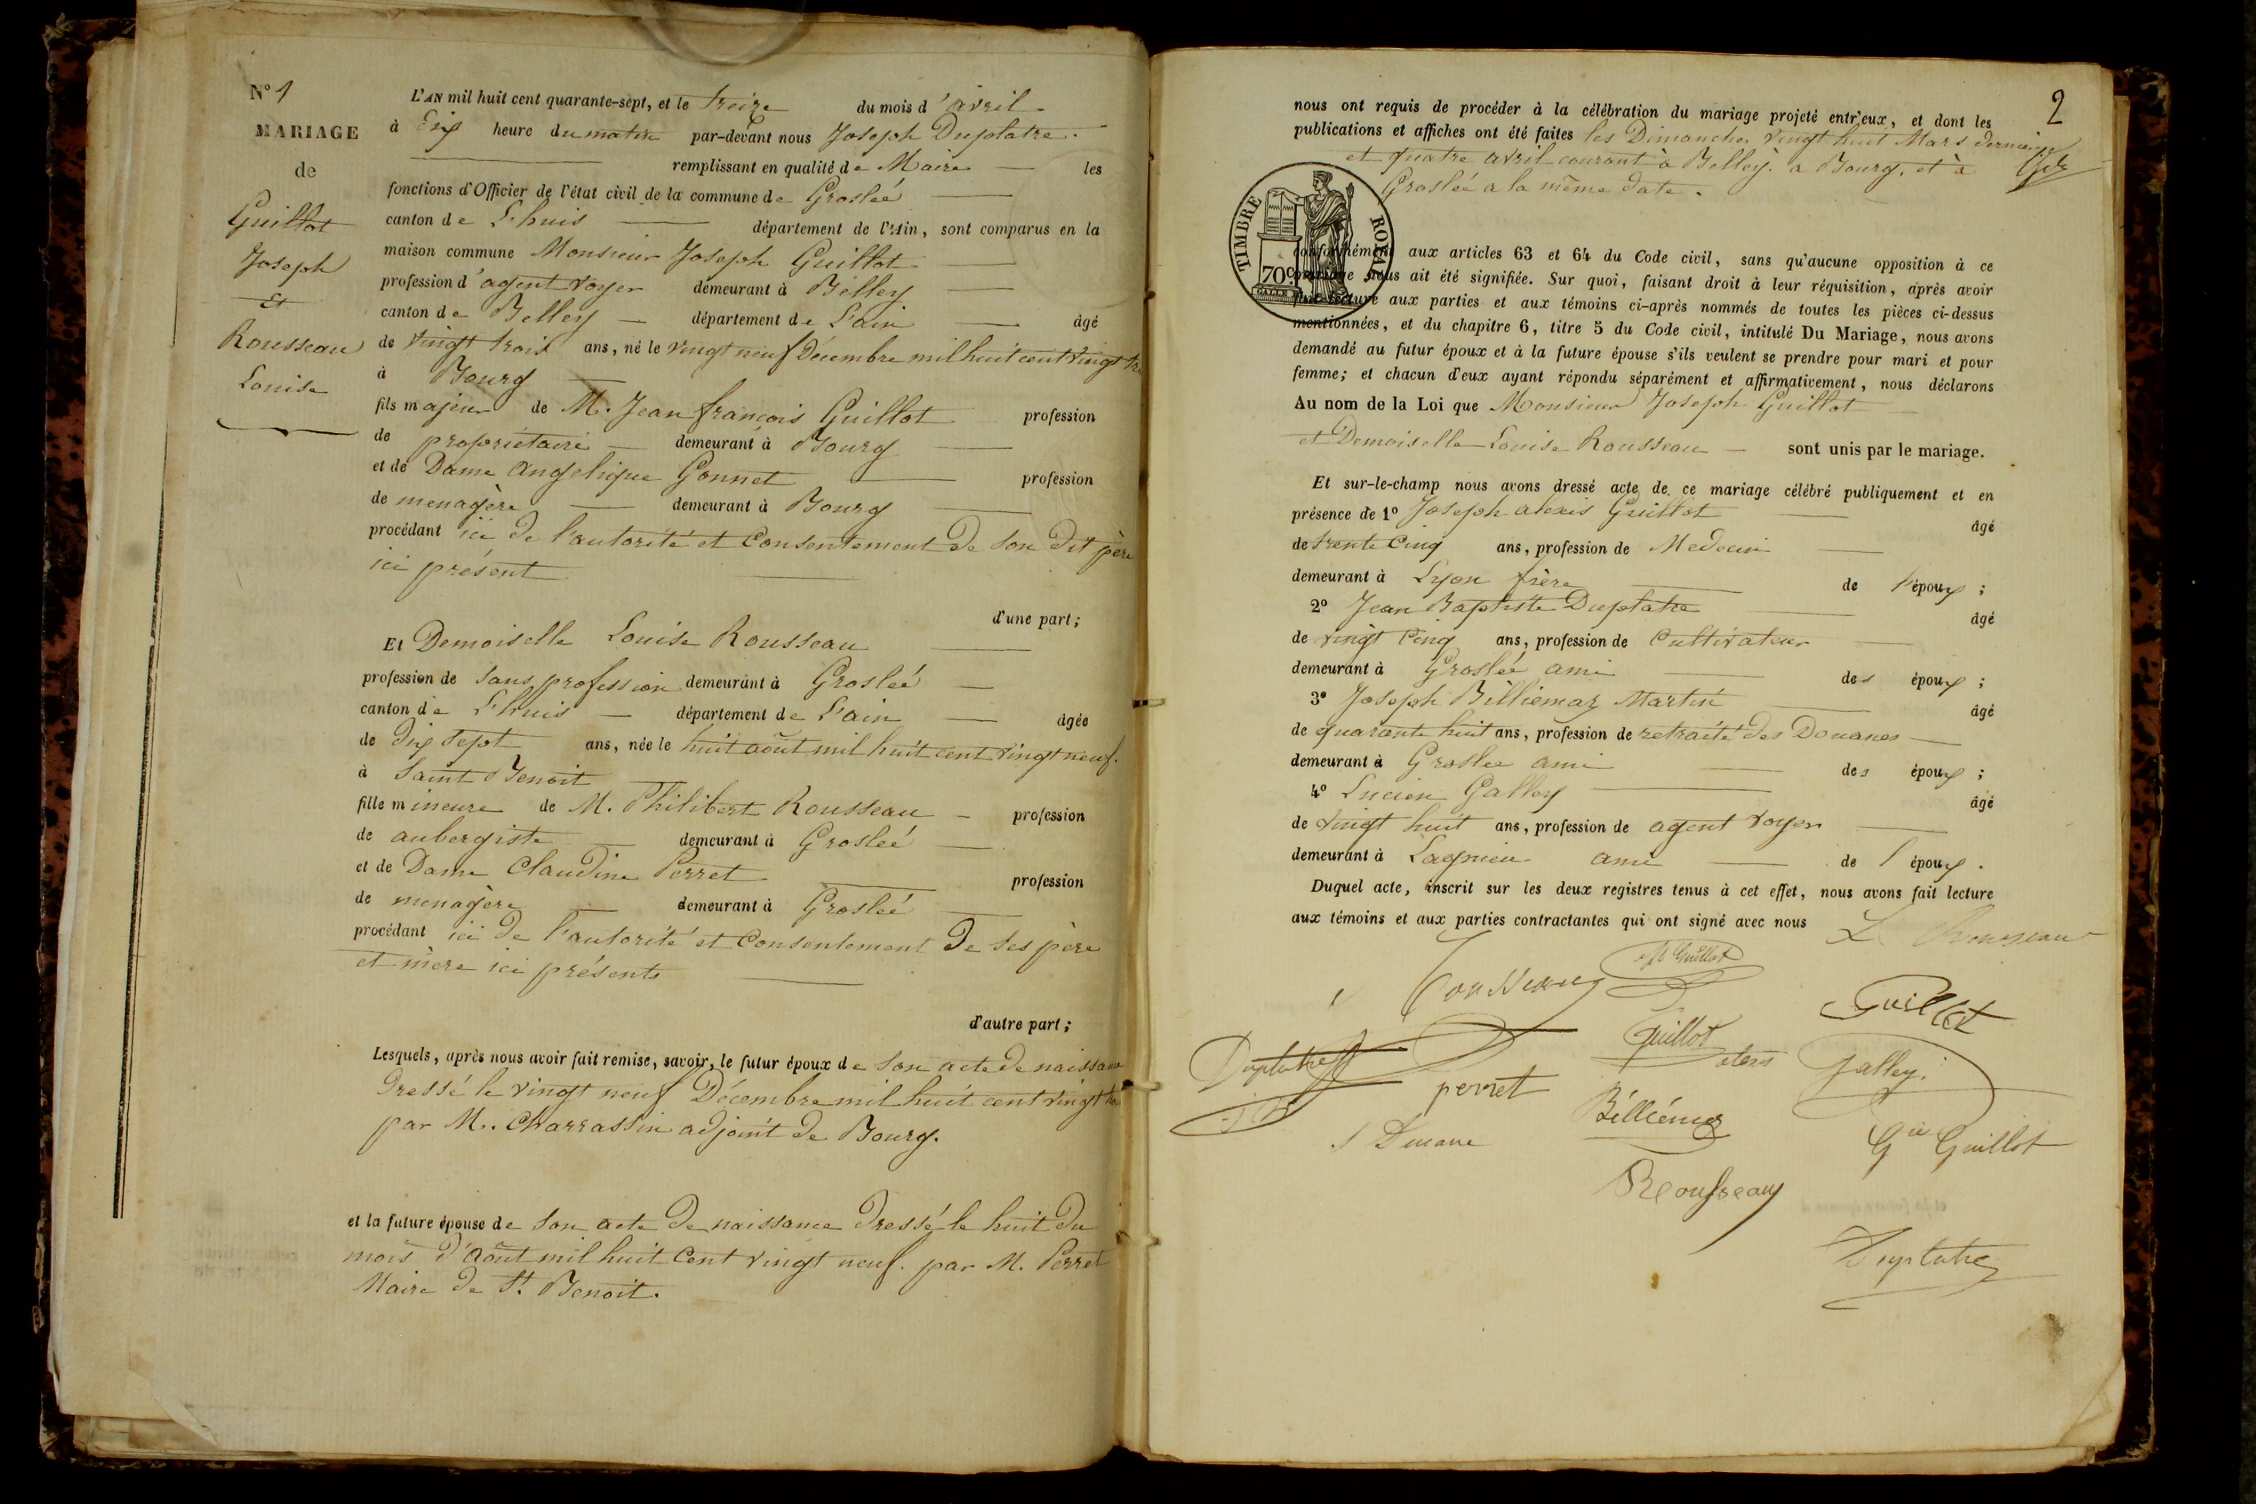 N° 1
MARIAGE
de
Guillot
Joseph
Et
Rousseau
Louise
L'AN mil huit cent quarante-sept, et le treize du mois d'avril
à Six heure du matin par-devant nous Joseph Duplatre
remplissant en qualité de Maire les
fonctions d'Officier de l'état civil de la commune de Grosleé
canton de L'huis département de l'Ain, sont comparus en la
maison commune Monsieur Joseph Guillot
profession d'agent voyer demeurant à Belley
canton de Belley département de L'ain âgé
de vingt trois ans, né le vingt neuf Décembre mil huit cent vingt
à Bourg
fils majeur de M. Jean françois Guillot profession
de propriétaire demeurant à Bourg
et de Dame Angelique Gonnet profession
de menagère demeurant à Bourg
procédant ici de l'autorité et consentement de son dit père
ici présent
d'une part;
Et Demoiselle Louise Rousseau
profession de sans profession demeurant à Grosleé
canton de L'huis département de L'ain âgée
de dix sept ans, née le huit août mil huit cent vingt neuf.
à Saint Benoit
fille mineure de M. Philibert Rousseau profession
de aubergiste demeurant à Grosleé
et de Dame Claudine Perret profession
de menagère demeurant à Grosleé
procédant ici de l'autorité et consentement de ses père
et mère ici présents
d'autre part;
Lesquels, après nous avoir fait remise, savoir, le futur époux de son acte de naissance
dressé le vingt neuf Décembre mil huit cent vingt
par M. Charrassin adjoint de Bourg.
et la future épouse de son acte de naissance dressé le huit du
mois d'août mil huit cent vingt neuf. par M. Perret
Maire de St. Benoit.
2
nous ont requis de procéder à la célébration du mariage projeté entr'eux, et dont les
publications et affiches ont été faites les Dimanches vingt huit Mars dernier
et quatre avril courant à Belley. à Bourg. et à
Grosleé a la même date.
TIMBRE ROYAL
70c
conformément aux articles 63 et 64 du Code civil, sans qu'aucune opposition à ce
mariage nous ait été signifiée. Sur quoi, faisant droit à leur réquisition, après avoir
fait lecture aux parties et aux témoins ci-après nommés de toutes les pièces ci-dessus
mentionnées, et du chapitre 6, titre 5 du Code civil, intitulé Du Mariage, nous avons
demandé au futur époux et à la future épouse s'ils veulent se prendre pour mari et pour
femme; et chacun d'eux ayant répondu séparément et affirmativement, nous déclarons
Au nom de la Loi que Monsieur Joseph Guillot
et Demoiselle Louise Rousseau sont unis par le mariage.
Et sur-le-champ nous avons dressé acte de ce mariage célébré publiquement et en
présence de 1° Joseph alexis Guillot âgé
de trente cinq ans, profession de Medecin
demeurant à Lyon frère de l'époux;
2° Jean Baptiste Duplatre âgé
de vingt cinq ans, profession de Cultivateur
demeurant à Grosleé ami des époux;
3° Joseph Billiemaz Martin âgé
de quarante huit ans, profession de retraité des Douanes
demeurant à Grosleé ami des époux;
4° Lucien Galley âgé
de vingt huit ans, profession de agent voyer
demeurant à Lagnieu ami de l'époux.
Duquel acte, inscrit sur les deux registres tenus à cet effet, nous avons fait lecture
aux témoins et aux parties contractantes qui ont signé avec nous L Rousseau
Guillot
Rousseau
Guillot
Duplatre
Guillot
Galley
perret
Billiémaz
Guillot
Rousseau
Duplatre